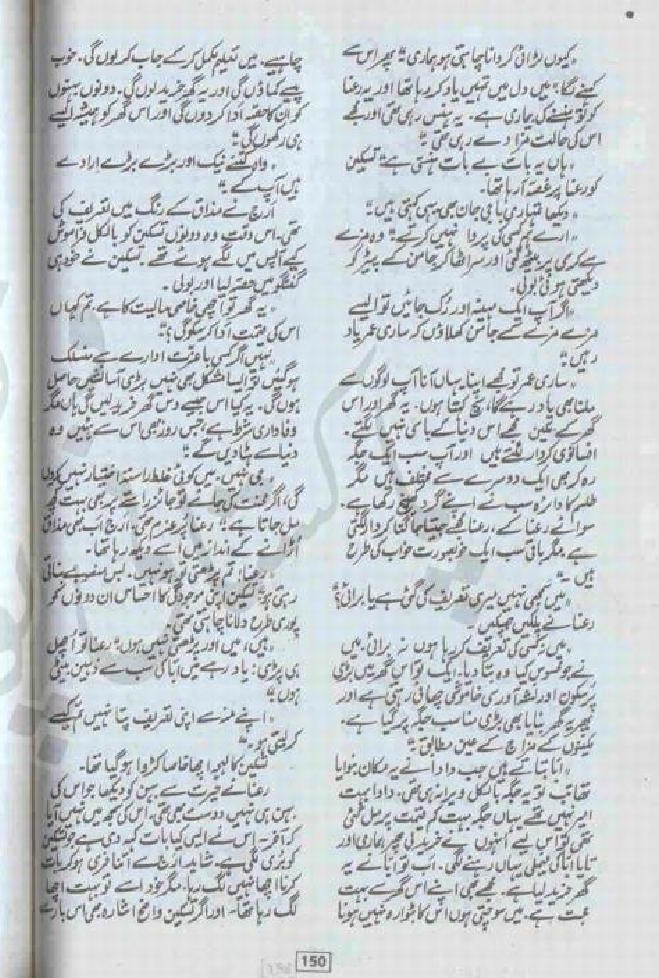 "کیوں لڑائی کروانا چاہتی ہو ہماری؟" پھر اس سے
کہنے لگا "میں دل میں تمہیں یاد کر رہا تھا اور یہ رعنا
کو تو ہنسنے کی بیماری ہے۔ یہ ہنس رہی تھی اور مجھے
اس کی حالت مزا دے رہی تھی۔"
"ہاں یہ بات بے بات ہنستی ہے" تسکین
کو رعنا پر غصہ آ رہا تھا۔
"دیکھا تمہاری باجی جان بھی یہی کہتی ہیں۔"
"ارے میں کسی کی پروا نہیں کرتے" وہ مزے
سے کرسی پر بیٹھ گئی اور سر اٹھا کر جامن کے پیڑ کو
دیکھتی ہوئی بولی۔
"اگر آپ ایک مہینہ اور رک جائیں تو ایسے
مزے مزے کے جامن کھلاؤں کہ ساری عمر یاد
رہیں۔"
"ساری عمر تو مجھے اپنا یہاں آنا آپ لوگوں سے
ملنا بھی یاد رہے گا، سچ کہتا ہوں۔ یہ گھر اور اس
گھر کے مکین مجھے اس دنیا کے باسی نہیں لگتے۔
افسانوی کردار لگتے ہیں اور آپ سب ایک جگہ
رہ کر بھی ایک دوسرے سے مختلف ہیں مگر
طلسم کا دائرہ سب نے اپنے گرد کھینچ رکھا ہے۔
سوائے رعنا کے، رعنا مجھے جیتا جاگتا کردار لگتی
ہے مگر باقی سب ایک خوبصورت خواب کی طرح
ہیں۔"
"میں سمجھی نہیں میری تعریف کی گئی ہے یا برائی؟"
رعنا نے پلکیں جھپکیں۔
"میں نہ کسی کی تعریف کر رہا ہوں نہ برائی، میں
نے جو محسوس کیا وہ بتا دیا۔ ایک تو اس گھر میں بڑی
پرسکون اور نشہ آور سی خاموشی چھائی رہتی ہے اور
پھر یہ گھر بنایا بھی بڑی مناسب جگہ پر گیا ہے۔
مکینوں کے مزاج کے عین مطابق۔"
"ابا بتاتے ہیں جب دادا نے یہ مکان بنوایا
تھا تب تو یہ جگہ بالکل ویرانہ ہی تھی۔ دادا بہت
امیر نہیں تھے یہاں جگہ بہت کم قیمت پر مل گئی
تھی تو اس لیے انہوں نے خرید لی پھر ہماری اور
تایا ابا کی فیملی یہاں رہنے لگی۔ اب تو ابا نے یہ
گھر خرید لیا ہے۔ مجھے بھی اپنے اس گھر سے بہت
محبت ہے۔ میں سوچتی ہوں اس کا بٹوارہ نہیں ہونا
چاہیے۔ میں تعلیم مکمل کر کے جاب کر لوں گی۔ خوب
پیسے کماؤں گی اور یہ گھر خرید لوں گی۔ دونوں بہنوں
کو ان کا حصہ ادا کر دوں گی اور اس گھر کو ہمیشہ ایسے
ہی رکھوں گی۔"
"واہ کتنے نیک اور بڑے بڑے ارادے
ہیں آپ کے۔"
ارج نے مذاق کے رنگ میں تعریف کی
تھی۔ اس وقت وہ دونوں تسکین کو بالکل فراموش
کیے آپس میں لگے ہوئے تھے۔ تسکین نے خود ہی
گفتگو میں حصہ لیا اور بولی۔
"یہ گھر تو اچھی خاصی مالیت کا ہے، تم کہاں
اس کی قیمت ادا کر سکو گی؟"
"نہیں اگر کسی باعزت ادارے سے منسلک
ہو گئیں تو ایسا مشکل بھی نہیں بڑی آسائشیں حاصل
ہوں گی۔ یہ کیا اس جیسے دس گھر خرید لیں گی ہاں مگر
وفاداری شرط ہے، جس روز بھی اس سے ہٹیں وہ
دنیا سے ہٹا دیں گے۔"
"جی نہیں۔ میں کوئی غلط راستہ اختیار نہیں کروں
گی، اگر محنت کی جائے تو جائز راستے پر بھی بہت کچھ
مل جاتا ہے۔" رعنا پر عزم تھی۔ ارج اب بھی مذاق
اڑانے کے انداز میں اسے دیکھ رہا تھا۔
"رعنا! تم پڑھتی تو ہو نہیں۔ بس منصوبے بناتی
رہتی ہو" تسکین اپنی موجودگی کا احساس ان دونوں کو
پوری طرح دلانا چاہتی تھی۔
"ہیں، میں اور پڑھتی نہیں ہوں" رعنا تو اچھل
ہی پڑی: یاد رہے میں ابا کی سب سے ذہین بیٹی
ہوں۔"
"اپنے منہ سے اپنی تعریف پتا نہیں تم کیسے
کر لیتی ہو۔"
تسکین کا لہجہ اچھا خاصا کڑوا ہو گیا تھا۔
رعنا نے حیرت سے بہن کو دیکھا جو اس کی
بہن ہی نہیں دوست بھی تھی۔ اس کی سمجھ میں نہیں آیا
کہ آخر اس نے ایسی کیا بات کہہ دی ہے جو تسکین
کو بری لگی ہے۔ شاید ارج سے اتنا فری ہو کر بات
کرنا اچھا نہیں لگ رہا۔ مگر خود اسے تو بہت اچھا
لگ رہا تھا۔ اور اگر تسکین واضح اشارہ بھی اس بارے
150